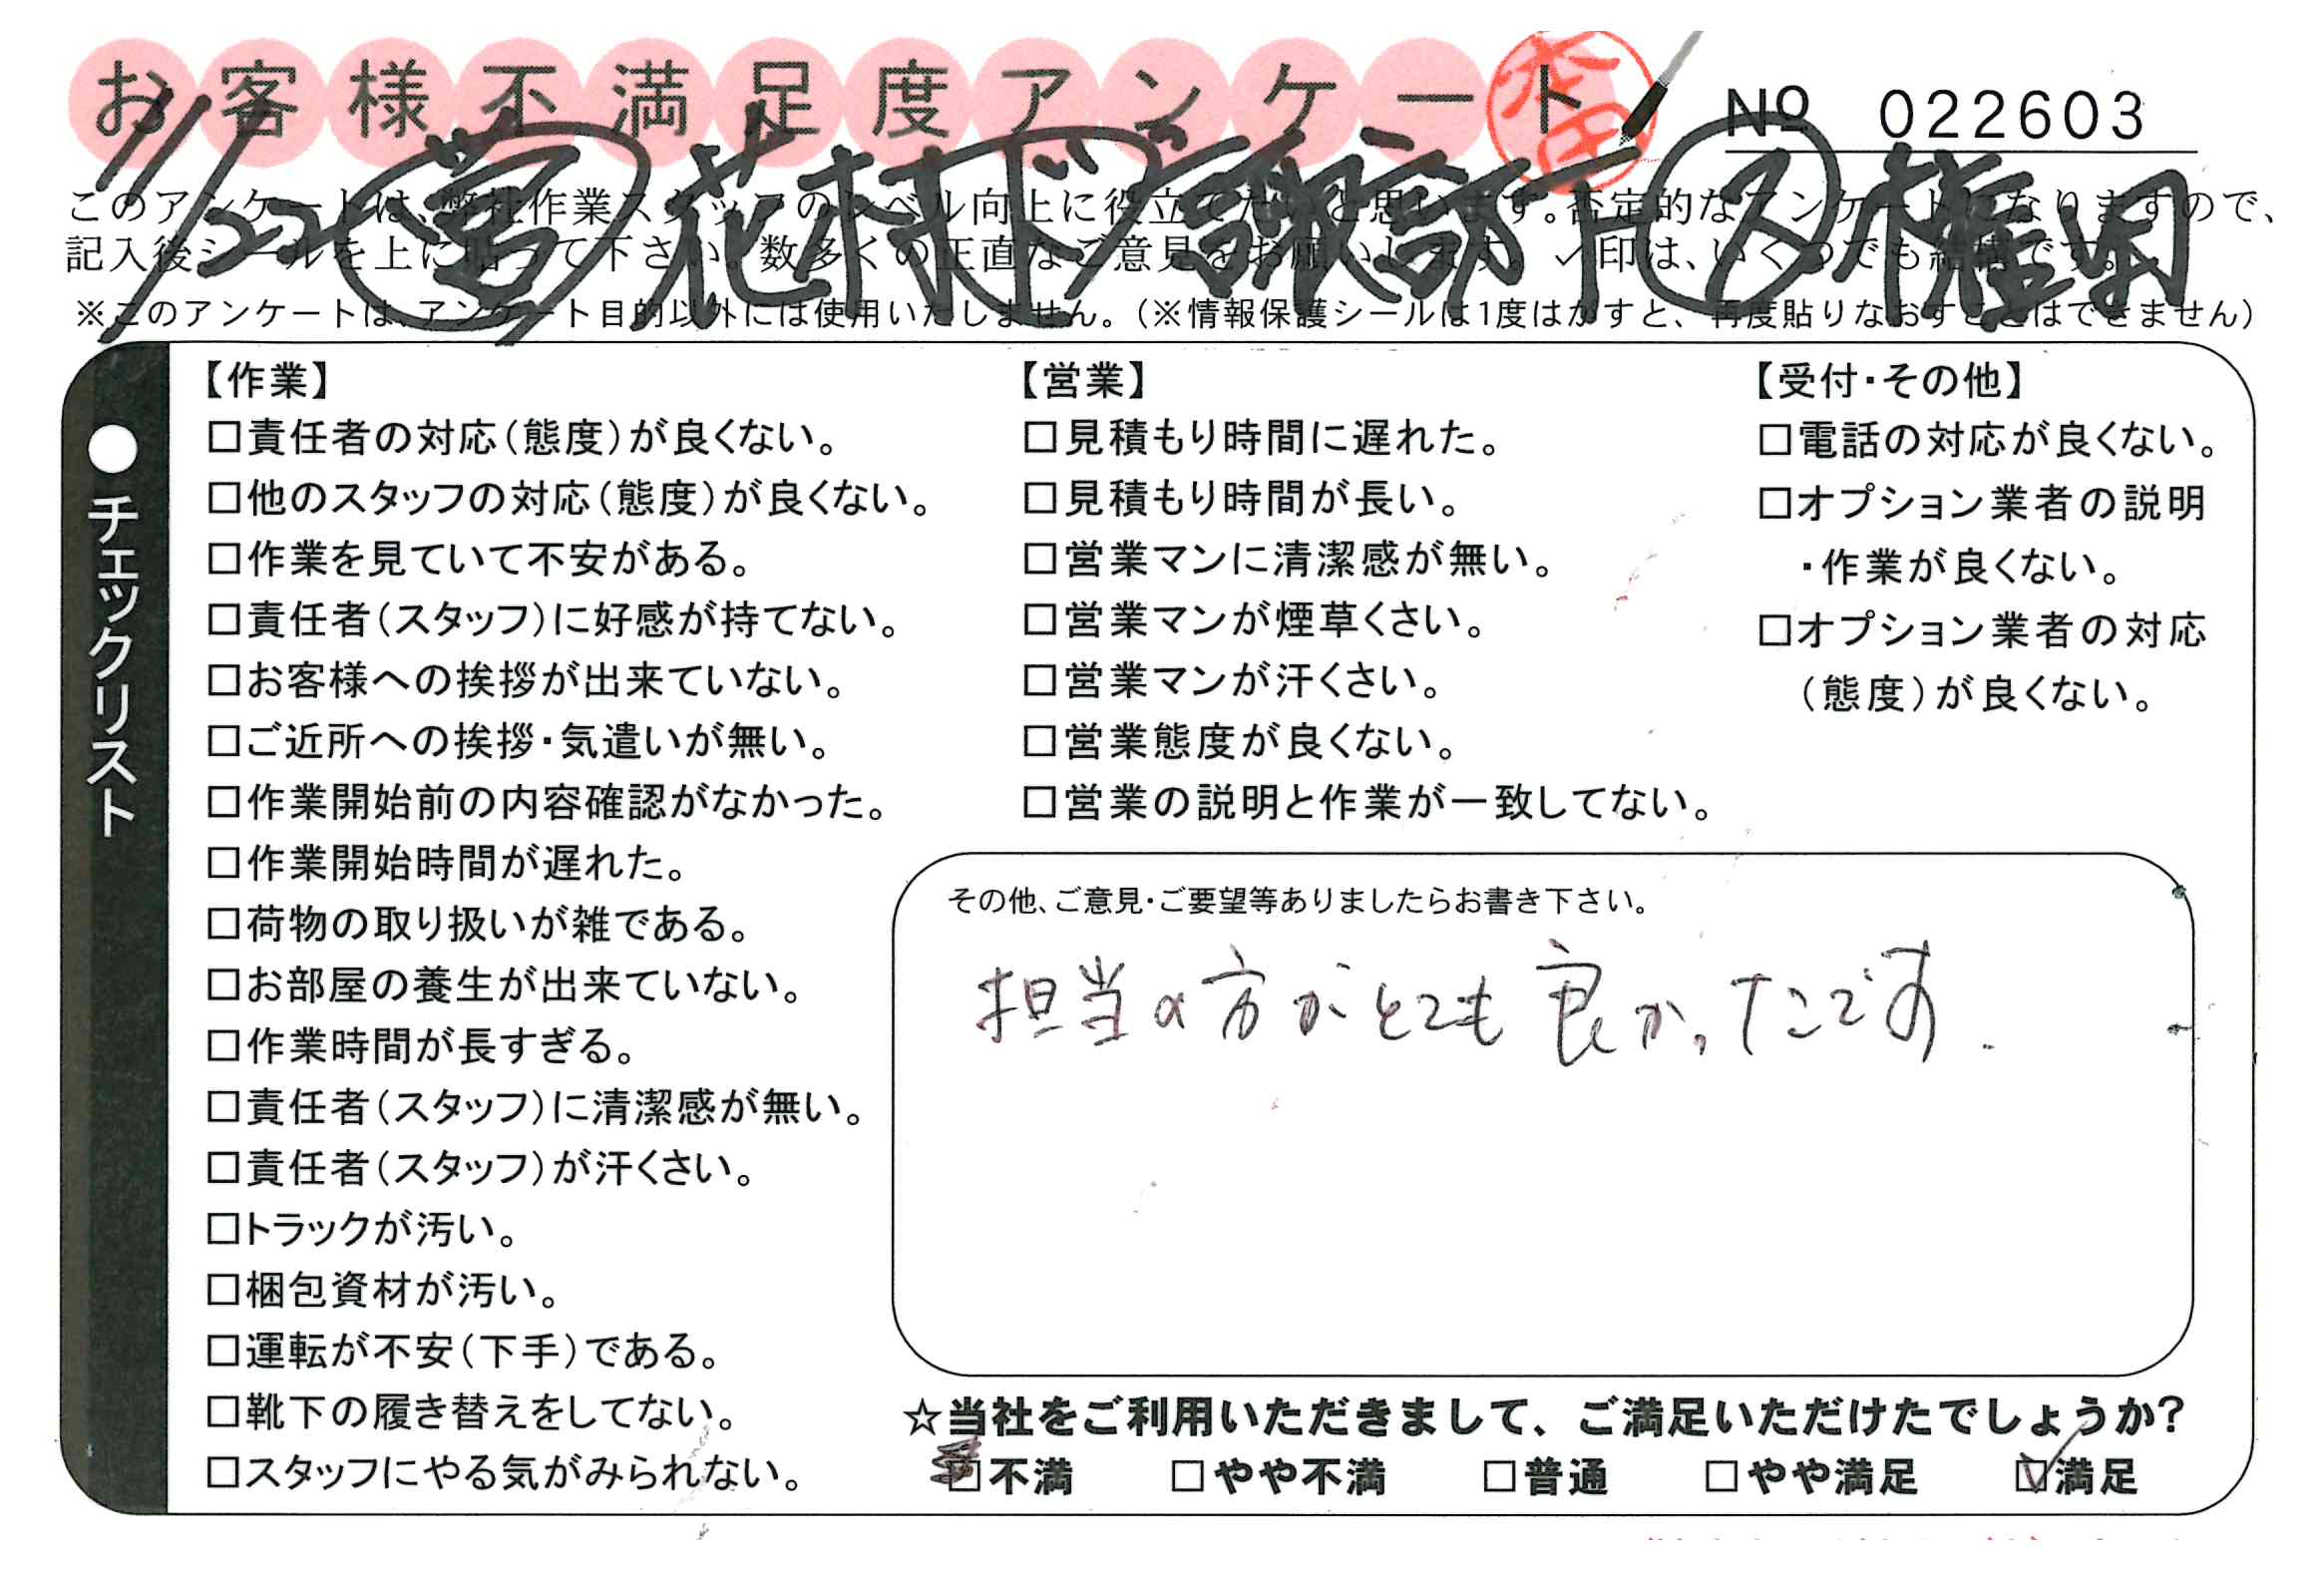 お客様不満足度アンケート
No 022603
11/22 営 花村 ド 諏訪下 ス 権田
このアンケートは、弊社作業スタッフのレベル向上に役立てたいと思います。否定的なアンケートになりますので、
記入後シールを上に貼って下さい。数多くの正直なご意見をお願いします。✓印は、いくつでも結構です。
※このアンケートは、アンケート目的以外には使用いたしません。(※情報保護シールは1度はがすと、再度貼りなおすことはできません)
●チェックリスト
【作業】
□責任者の対応(態度)が良くない。
□他のスタッフの対応(態度)が良くない。
□作業を見ていて不安がある。
□責任者(スタッフ)に好感が持てない。
□お客様への挨拶が出来ていない。
□ご近所への挨拶・気遣いが無い。
□作業開始前の内容確認がなかった。
□作業開始時間が遅れた。
□荷物の取り扱いが雑である。
□お部屋の養生が出来ていない。
□作業時間が長すぎる。
□責任者(スタッフ)に清潔感が無い。
□責任者(スタッフ)が汗くさい。
□トラックが汚い。
□梱包資材が汚い。
□運転が不安(下手)である。
□靴下の履き替えをしてない。
□スタッフにやる気がみられない。
【営業】
□見積もり時間に遅れた。
□見積もり時間が長い。
□営業マンに清潔感が無い。
□営業マンが煙草くさい。
□営業マンが汗くさい。
□営業態度が良くない。
□営業の説明と作業が一致してない。
【受付・その他】
□電話の対応が良くない。
□オプション業者の説明
・作業が良くない。
□オプション業者の対応
(態度)が良くない。
その他、ご意見・ご要望等ありましたらお書き下さい。
担当の方がとても良かったです.
☆当社をご利用いただきまして、ご満足いただけたでしょうか?
□不満 □やや不満 □普通 □やや満足 ☑満足